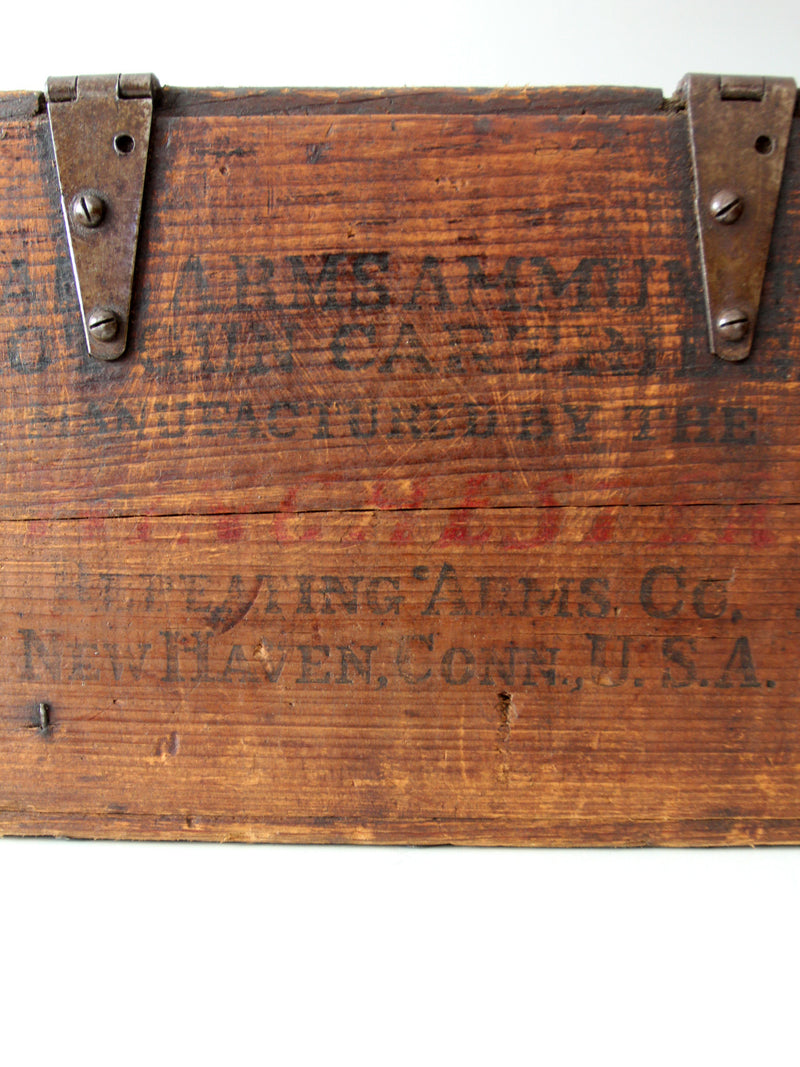 ARMS AMMUN
OR GUN CARTRIDGES
MANUFACTURED BY THE
WINCHESTER
REPEATING ARMS CO.
NEW HAVEN, CONN., U.S.A.